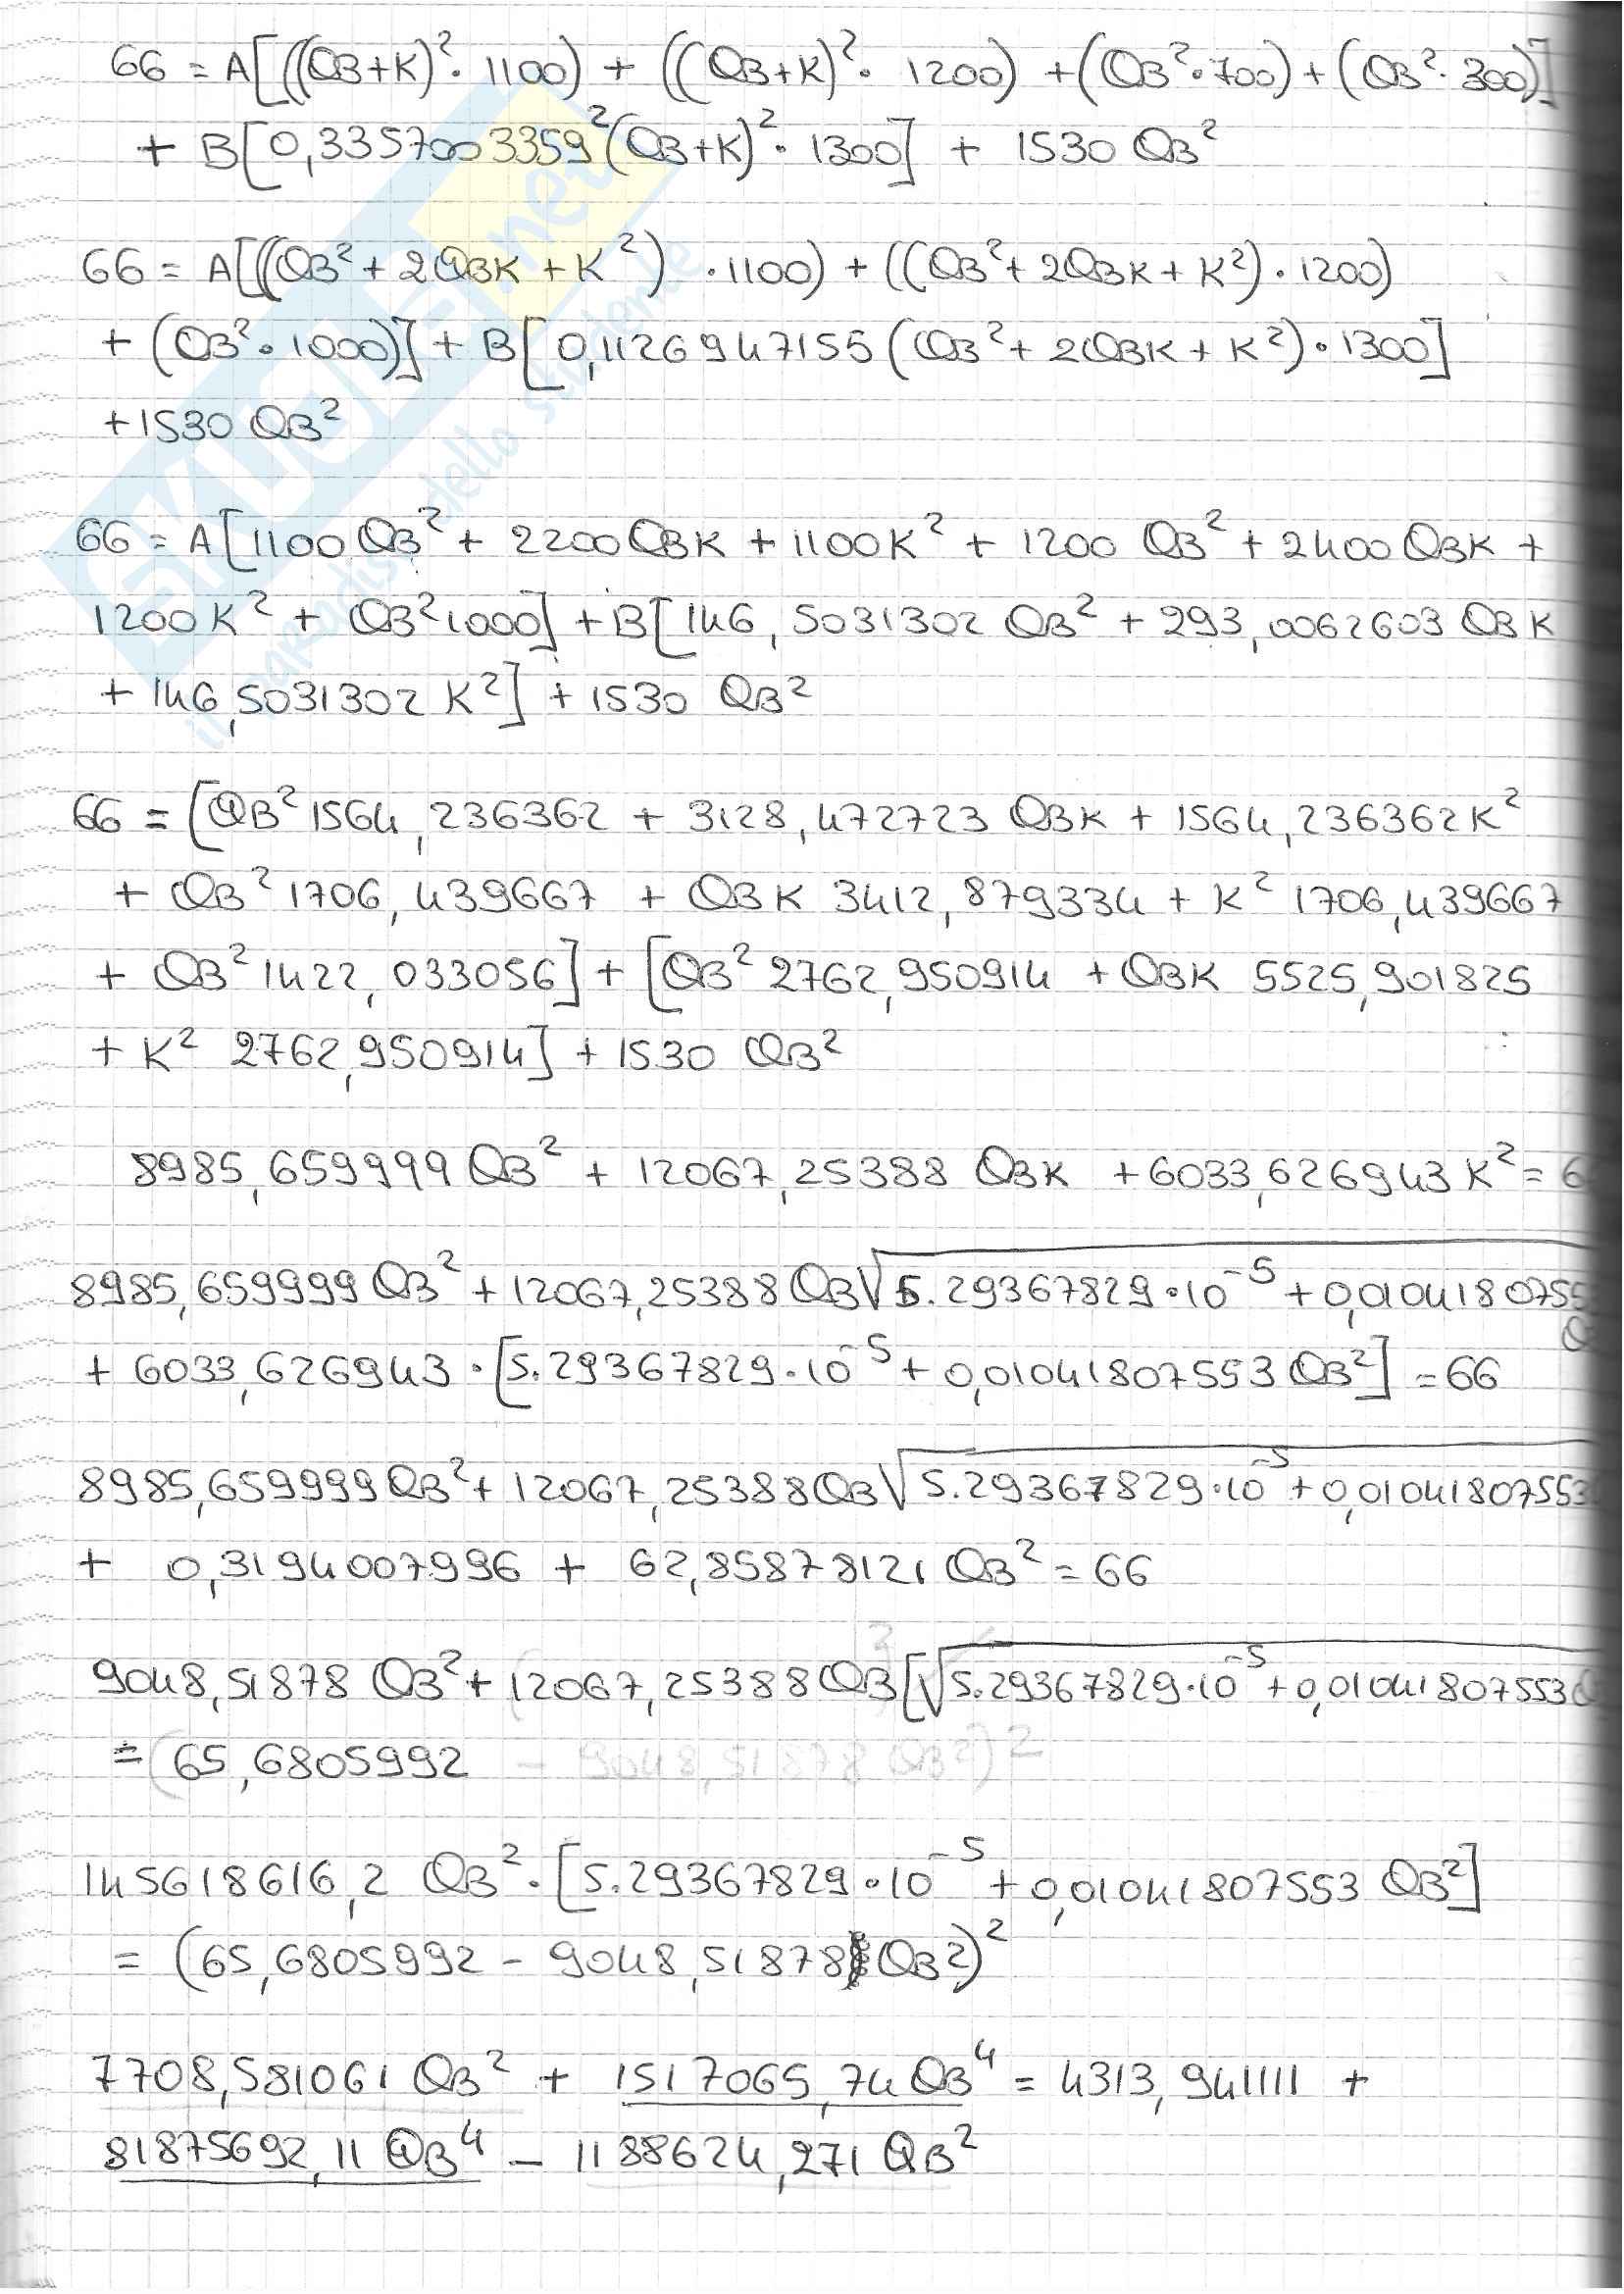 66 = A[((QB+K)²· 1100) + ((QB+K)²· 1200) + (QB²·700) + (QB²·300)]
+ B[0,3357003359²(QB+K)²· 1300] + 1530 QB²
66 = A[((QB² + 2QBK + K²) ·1100) + ((QB² + 2QBK + K²)·1200)
+ (QB²·1000)] + B[0,1126947155(QB² + 2QBK + K²)·1300]
+1530 QB²
66 = A[1100 QB² + 2200QBK + 1100K² + 1200 QB² + 2400 QBK +
1200K² + QB²1000] + B[146,5031302 QB² + 293,0062603 QBK
+ 146,5031302 K²] + 1530 QB²
66 = [QB² 1564,236362 + 3128,472723 QBK + 1564,236362K²
+ QB² 1706,439667 + QBK 3412,879334 + K² 1706,439667
+ QB² 1422,033056] + [QB² 2762,950914 + QBK 5525,901825
+ K² 2762,950914] + 1530 QB²
8985,659999 QB² + 12067,25388 QBK + 6033,626943 K² = 6
8985,659999 QB² + 12067,25388 QB√5.29367829·10⁻⁵ + 0,010418075
+ 6033,626943 · [5.29367829·10⁻⁵ + 0,01041807553 QB²] = 66
8985,659999QB² + 12067,25388QB√5.29367829·10⁻⁵ + 0,01041807553
+ 0,3194007996 + 62,85878121 QB² = 66
9048,51878 QB² + 12067,25388QB[√5.29367829·10⁻⁵ + 0,01041807553
= (65,6805992 - 9048,51878 QB²)²
145618616,2 QB² · [5.29367829·10⁻⁵ + 0,01041807553 QB²]
= (65,6805992 - 9048,51878 QB²)²
7708,581061 QB² + 1517065,74 QB⁴ = 4313,941111 +
81875692,11 QB⁴ - 1188624,271 QB²
SKUOLA.net
il paradiso dello studente